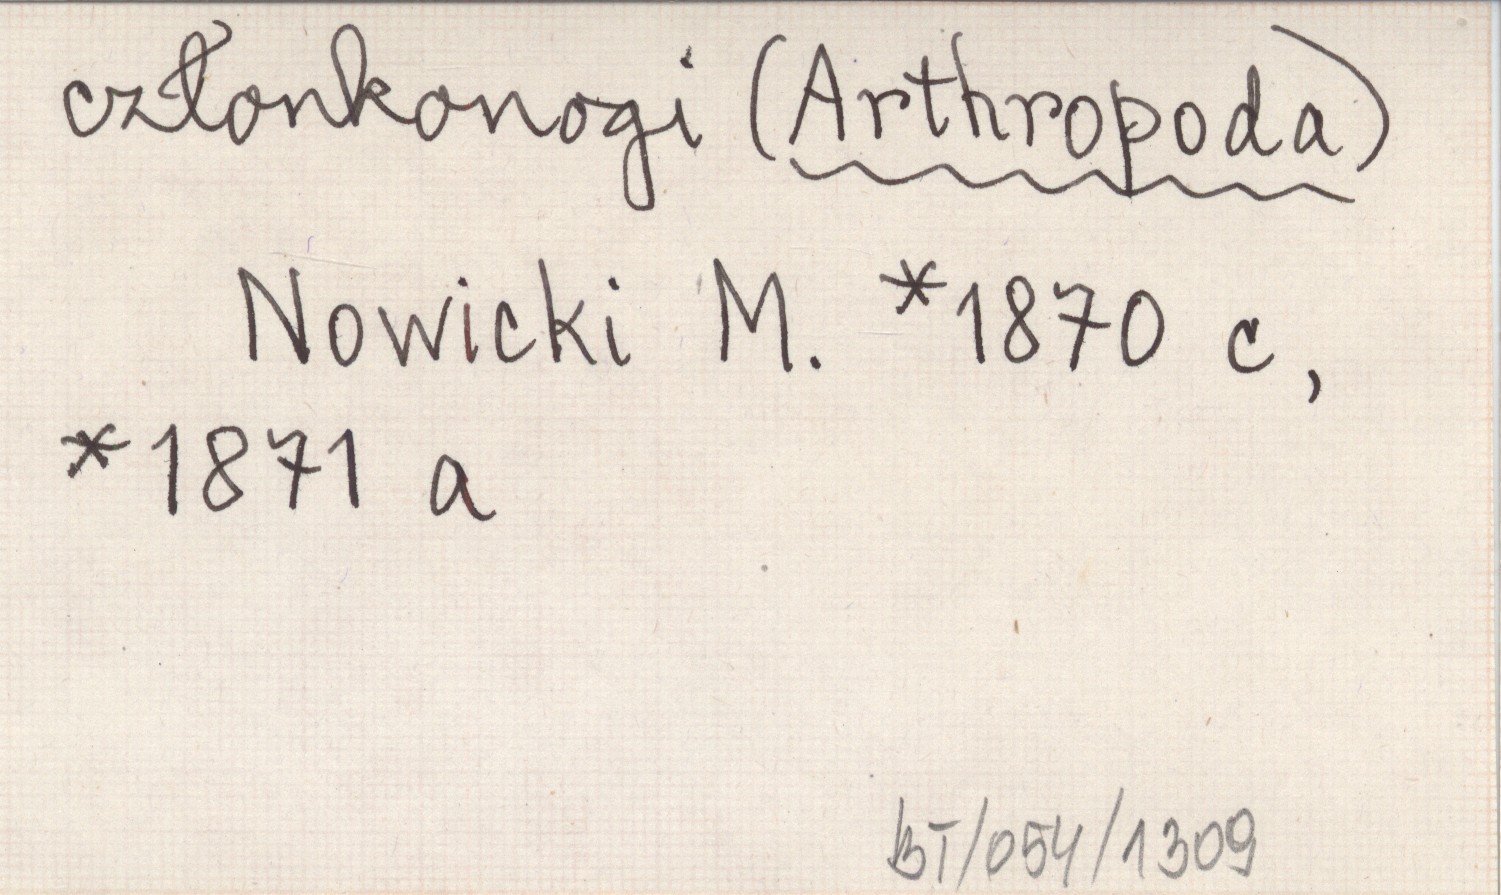 członkonogi (Arthropoda)
Nowicki M. *1870 c,
*1871 a
BT/054/1309